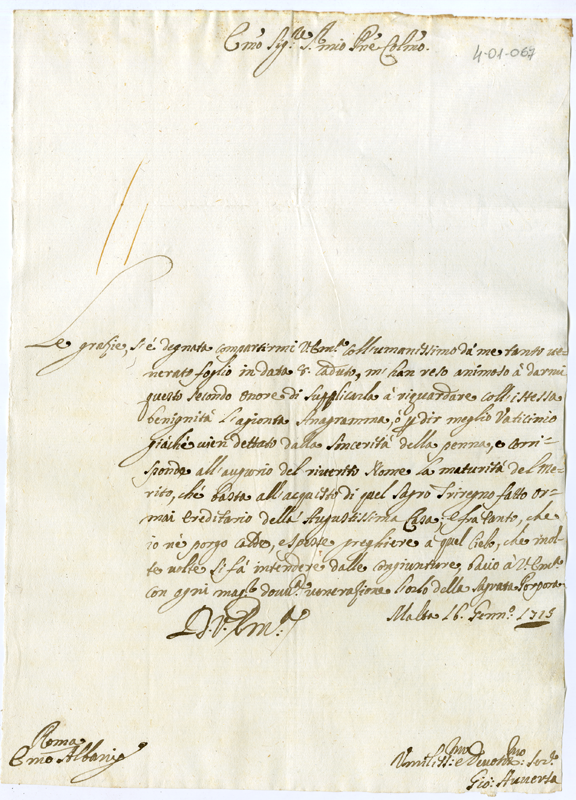 Emo Sig.re S.r mio Pne Colmo.
4-01-067
Le grazie, si è degnata compartirmi V. Em.za coll'umanissimo da me tanto ve-
nerato foglio in data 8 caduto, m'han reso animoso à darmi
questo secondo onore di supplicarla à riguardare coll'istessa
benignità l'agionta Anagramma, ò p dir meglio Vaticinio
giàche vien dettato dalla sincerità della penna, e corri-
sponde all'augurio del riverito Nome la maturità del me-
rito, che basta all'acquisto di quel Sagro Triregno fatto or-
mai Ereditario della Augustissima Casa: E fra tanto, che
io nè porgo calde, e spesse preghiere a quel Cielo, che mol-
te volte si fà intendere dalle congiunture, bacio à V. Em.za
con ogni magr. dovut.a venerazione l'orlo della Sagrata Porpora
Malta 16. Genn.o 1715
D. V. Em.za
Roma
Emo Albani
Umiliss.mo e Devotiss.mo Ser.re
Gio: